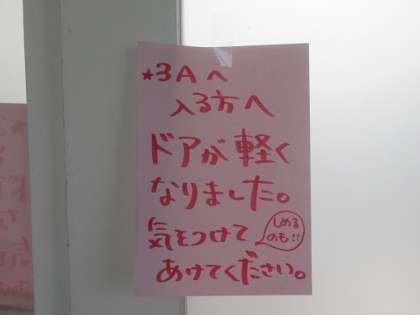 ★3Aへ
入る方へ
ドアが軽く
なりました。
気をつけて
しめる
のも!!
あけてください。